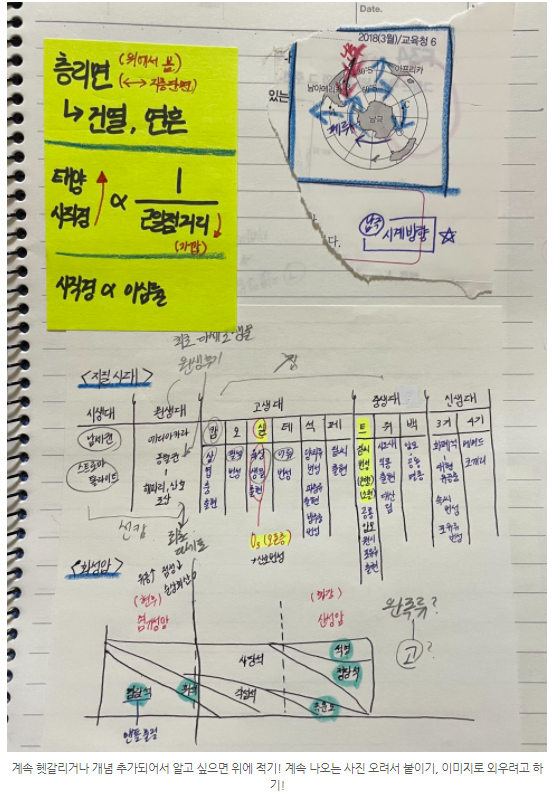 Date.
층리면 (위에서 봄)
(↔ 지층단면)
↳ 건열, 연흔
태양
시직경 ∝ 1
근일점거리
시직경 ∝ 이심률
2018(3월)/교육청 6
아프리카
남아메리카
있는
남극
시계방향 ☆
다.
최초 다세포 생물
<지질시대>
시생대
원생대
고생대
중생대
신생대
캄
오
실
데
석
페
트
쥐
백
3기
4기
남세균
스트로마
톨라이트
에디아카라
동물군
삼
엽
충
출현
필석
번성
육상
생물
출현
번성
양서류
번성
파충류
출현
겉씨
출현
겉씨
번성
공룡
암모
출현
시조새
출현
대서
암모
공룡
멸종
화폐석
속씨
번성
포유류
번성
매머드
선캄
최초
O₃ (오존층)
<화성암>
유동↑
(현무)
염기성암
(화강)
산성암
완족류?
고?
사장석
석영
정장석
감람석
휘석
각섬석
흑운모
맨틀물질
계속 헷갈리거나 개념 추가되어서 알고 싶으면 위에 적기! 계속 나오는 사진 오려서 붙이기, 이미지로 외우려고 하
기!